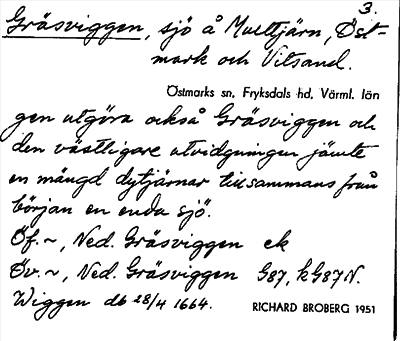 3.
Gräsviggen, sjö å Multtjärn, Öst-
mark och Vitsand.
Östmarks sn, Fryksdals hd, Värml. län
gen utgöra också Gräsviggen och
den västligare utvidgningen jämte
en mängd dytjärnar tillsammans från
början en enda sjö.
Öf. ~, Ned. Gräsviggen ek
Öv. ~, Ned. Gräsviggen G87, kG87N.
Wiggen db 28/4 1664.
RICHARD BROBERG 1951